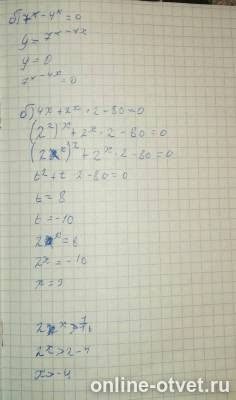 б) 7ˣ-4ˣ=0
y=7ˣ⁻⁴ˣ
y=0
7ˣ⁻⁴ˣ=0
б) 4x+2x·2-80=0
(2²)ˣ+2ˣ·2-80=0
(2ˣ)²+2ˣ·2-80=0
t²+t·2-80=0
t=8
t=-10
2ˣ=8
2ˣ=-10
x=3
2ˣ>
2x>2-4
x>-4
online-otvet.ru